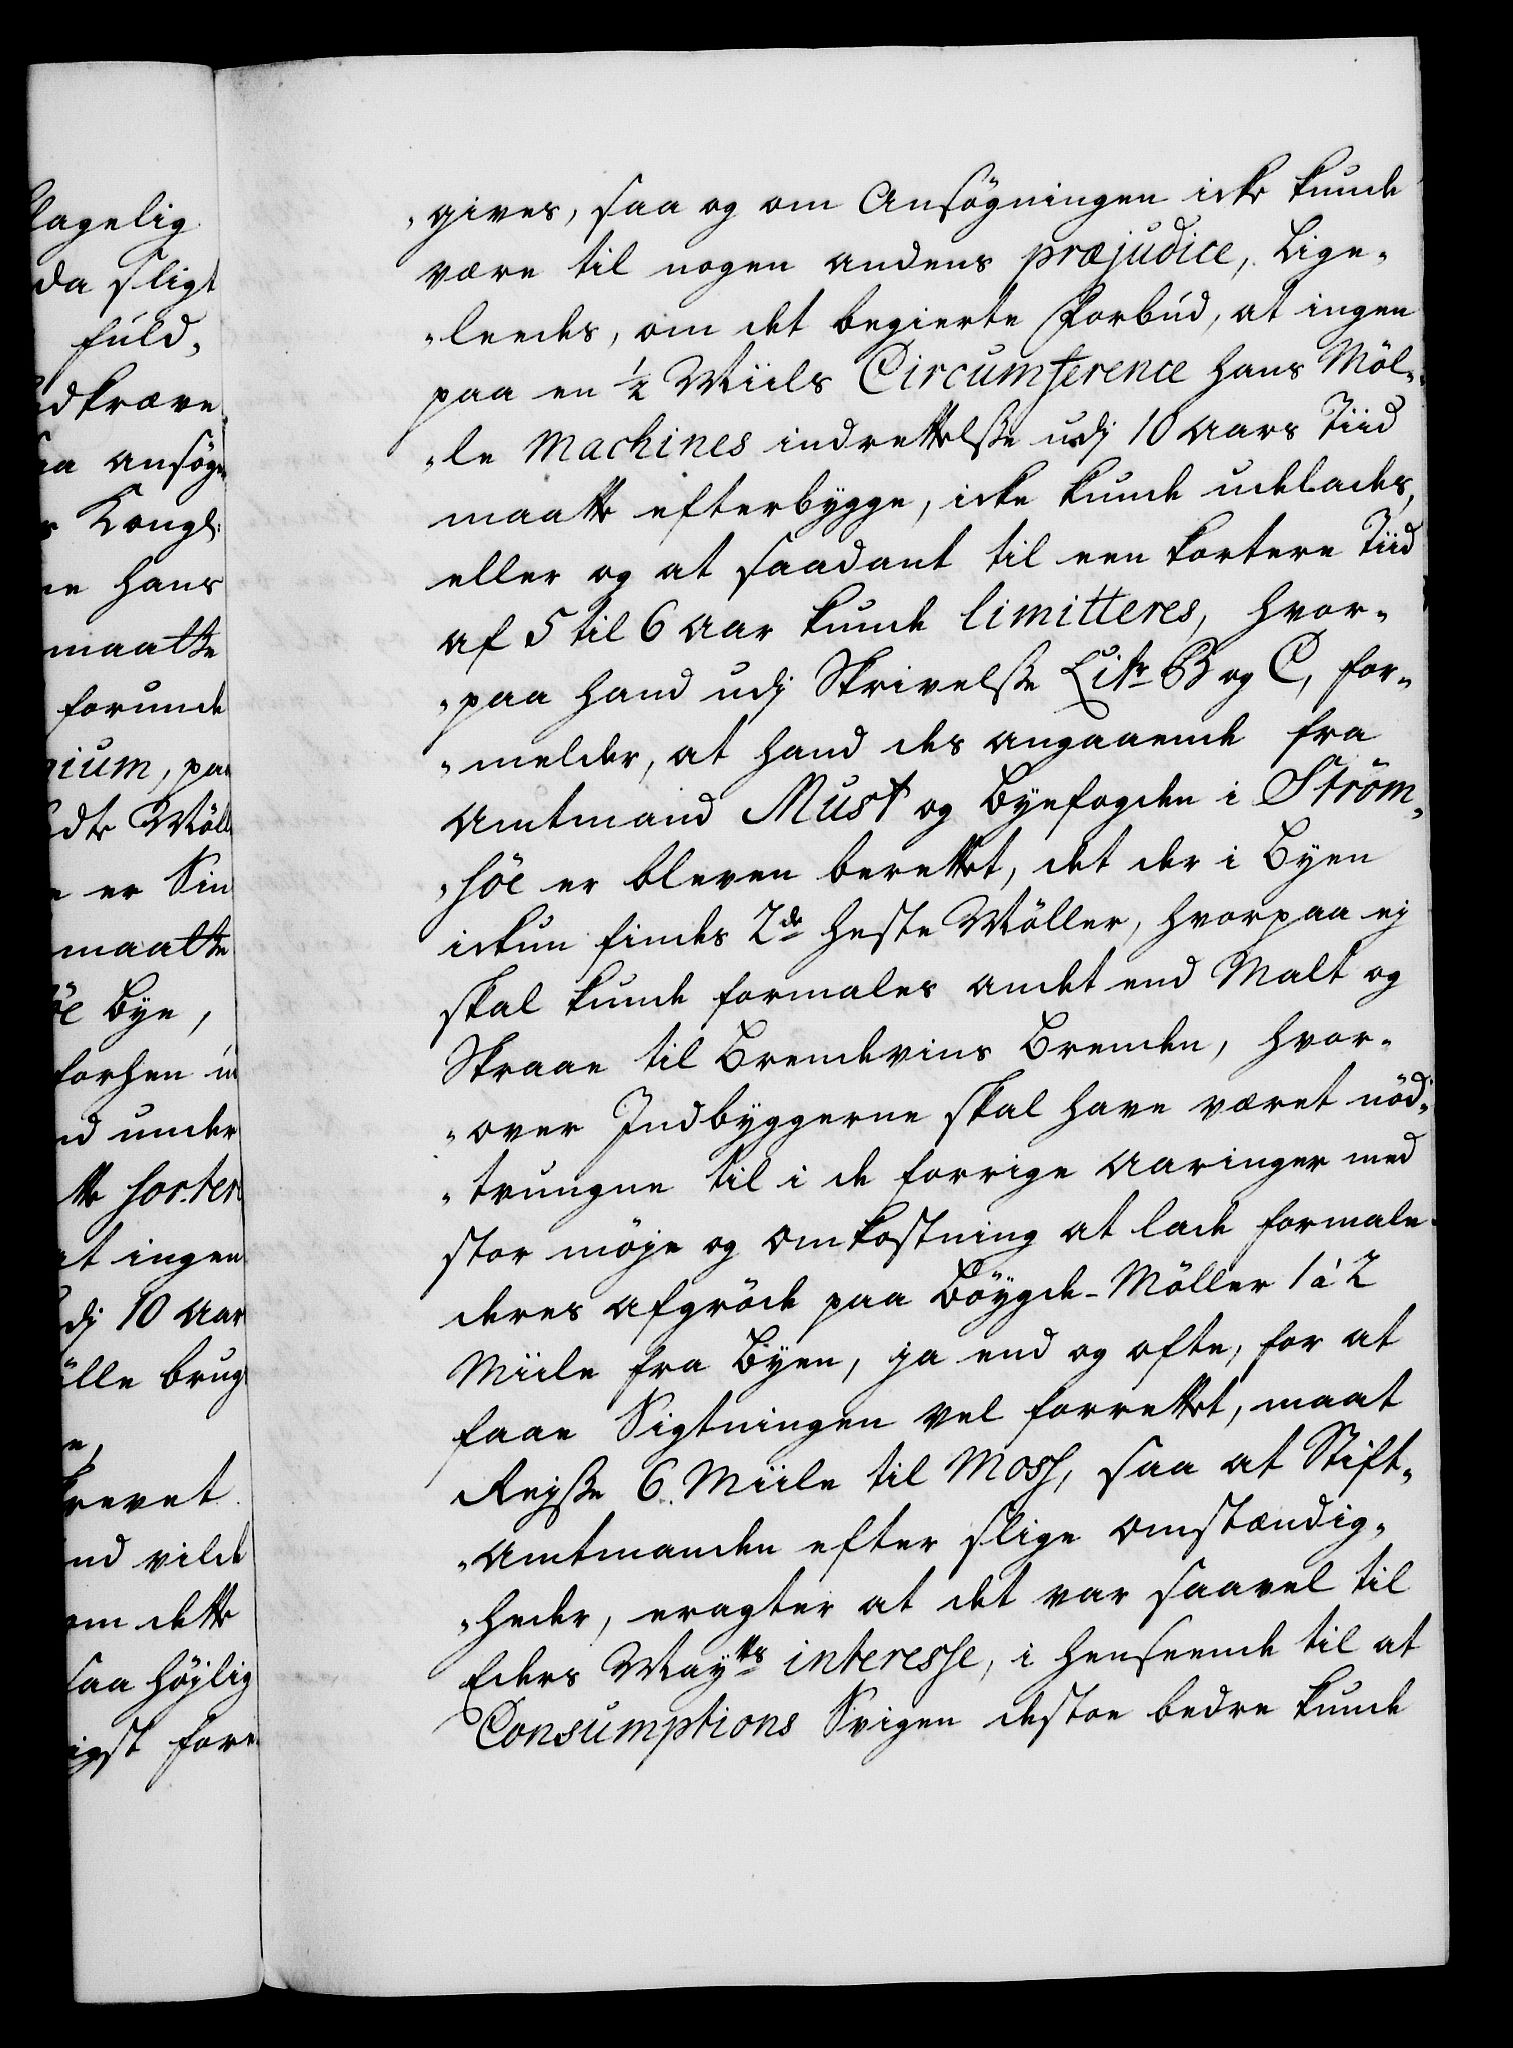 lagelig
da sligt
fuld„
dkræve
aa ansøg
r Kongl:
ne hans
maatte
forunde
ium, paa
dte Mölle
e er Sin
maatte
öe Bye,
forhen in
nd under
tte sorter
at ingen
dj 10 Aar
ölle brug
e,
krevet
nd vilde
om dette
saa höjlig
igst fore
„gives, saa og om Ansögningen icke kunde
være til nogen andens præjudice, Lige„
„leedes, om det begierte Forbud, at ingen
paa en ½ Miils Circumference hans Möl„
„le Machines indrettelsse udj 10 Aars Tiid
maatte efterbygge, icke kunde udelades,
eller og at saadant til een kortere Tiid
af 5 til 6 Aar kunde limitteres, hvor„
„paa hand udj Skrivelsse Litr B og C, for„
„melder, at hand des angaaende fra
Amtmand Must og Byefogden i Ström„
„söe er bleven berettet, det der i Byen
ickun findes 2de Heste Möller, hvorpaa ej
skal kunde formales andet end Malt og
Skraae til Brendeviins Brenden, hvor„
„over Indbyggerne skal have været nöd„
„trungne til i de forrige Aaringer med
stor möje og omkostning at lade formale
deres Afgröde paa Böygde-Möller 1 á 2
Miile fra Byen, ja end og ofte, for at
faae Sigtningen vel forrettet, maat
Rejsse 6. Miile til Moss, saa at Stift„
„Amtmanden efter slige omstændig„
„heder, eragter at det var saavel til
Eders Mayts interesse, i henseende til at
Consumptions Svigen destoe bedre kunde